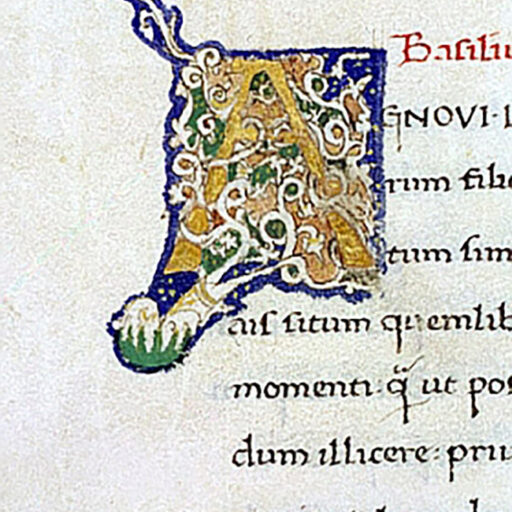 Basiliu
A GNOVI · L
rum filio
tum sim
cuis situm quemlib
momenti · q̃ ut pos
dum illicere : priu